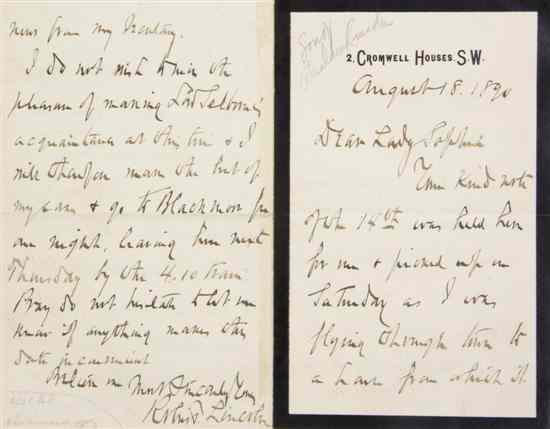 2, CROMWELL HOUSES S.W.
August 18. 1890
Dear Lady Sophia
Your kind note
of the 14th was held here
for me & picked up on
Saturday as I was
flying through town to
a house from which it
news from my Secretary.
I do not wish to miss the
pleasure of making Lord Selborne's
acquaintance at this time & I
will therefore make the best of
my case & go to Blackmoor for
one night, leaving here next
Thursday by the 4.10 train
Pray do not hesitate to let me
know if anything makes this
date inconvenient
Believe me Most Sincerely Yours
Robert Lincoln